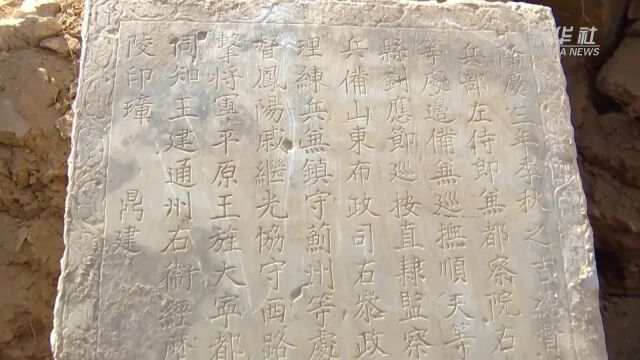 隆慶三年季秋之吉總督
兵部左侍郎兼都察院右
等處邊備兼巡撫順天等
縣劉應節巡按直隸監察
兵備山東布政司右叅政
理練兵兼鎮守薊州等處
督鳳陽戚繼光協守西路
擊將軍平原王旌大寧都
同知王建通州右衛經歷
陵印璋 鼎建
华社
NEWS